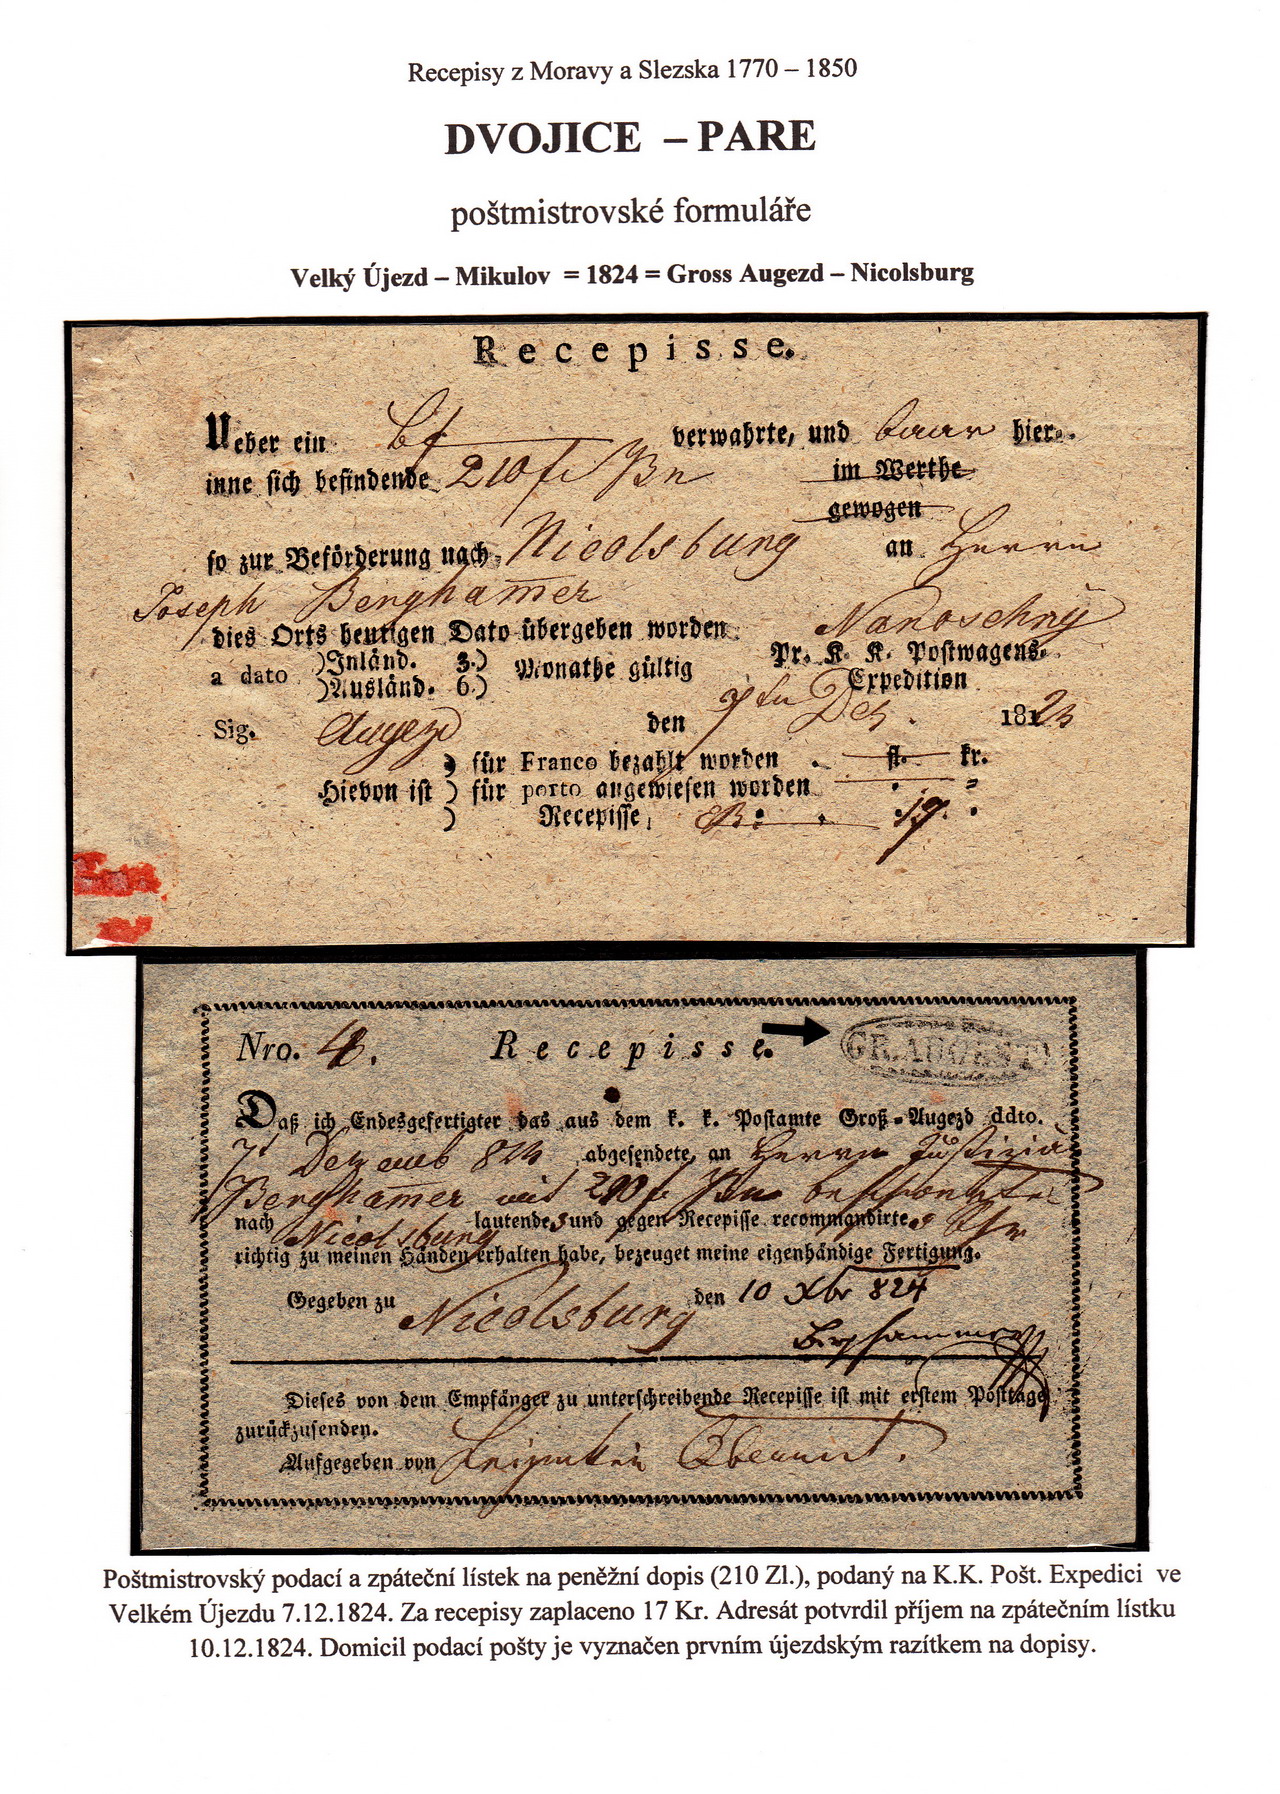 Recepisy z Moravy a Slezska 1770 – 1850
DVOJICE – PARE
poštmistrovské formuláře
Velký Újezd – Mikulov = 1824 = Gross Augezd – Nicolsburg
Recepisse.
Ueber ein Bf verwahrte, und baar hier-
inne sich befindende 210 f im Werthe
gewogen
so zur Beförderung nach Nicolsburg an Herrn
Joseph Berghamer
dies Orts heutigen Dato übergeben worden.
a dato )Inländ. 3.) Monathe gültig Pr. K. K. Postwagens-
)Ausländ. 6.) Expedition
Sig. Augezd den 7 Dez. 182
) für Franco bezahlt worden . fl. kr.
Hievon ist ) für porto angewiesen worden
) Recepisse, 17.
Nro. 4. Recepisse. GR.AUGEST
Daß ich Endesgefertigter das aus dem k. k. Postamte Groß-Augezd ddto.
7 Dez 824 abgesendete, an Herrn Justiziär
Berghamer mit 210 f
nach Nicolsburg lautende, und gegen Recepisse recommandirte
richtig zu meinen Händen erhalten habe, bezeuget meine eigenhändige Fertigung.
Gegeben zu Nicolsburg den 10 Xbr 824
Berghammer
Dieses von dem Empfänger zu unterschreibende Recepisse ist mit erstem Posttage
zurückzusenden.
Aufgegeben von
Poštmistrovský podací a zpáteční lístek na peněžní dopis (210 Zl.), podaný na K.K. Pošt. Expedici ve
Velkém Újezdu 7.12.1824. Za recepisy zaplaceno 17 Kr. Adresát potvrdil příjem na zpátečním lístku
10.12.1824. Domicil podací pošty je vyznačen prvním újezdským razítkem na dopisy.